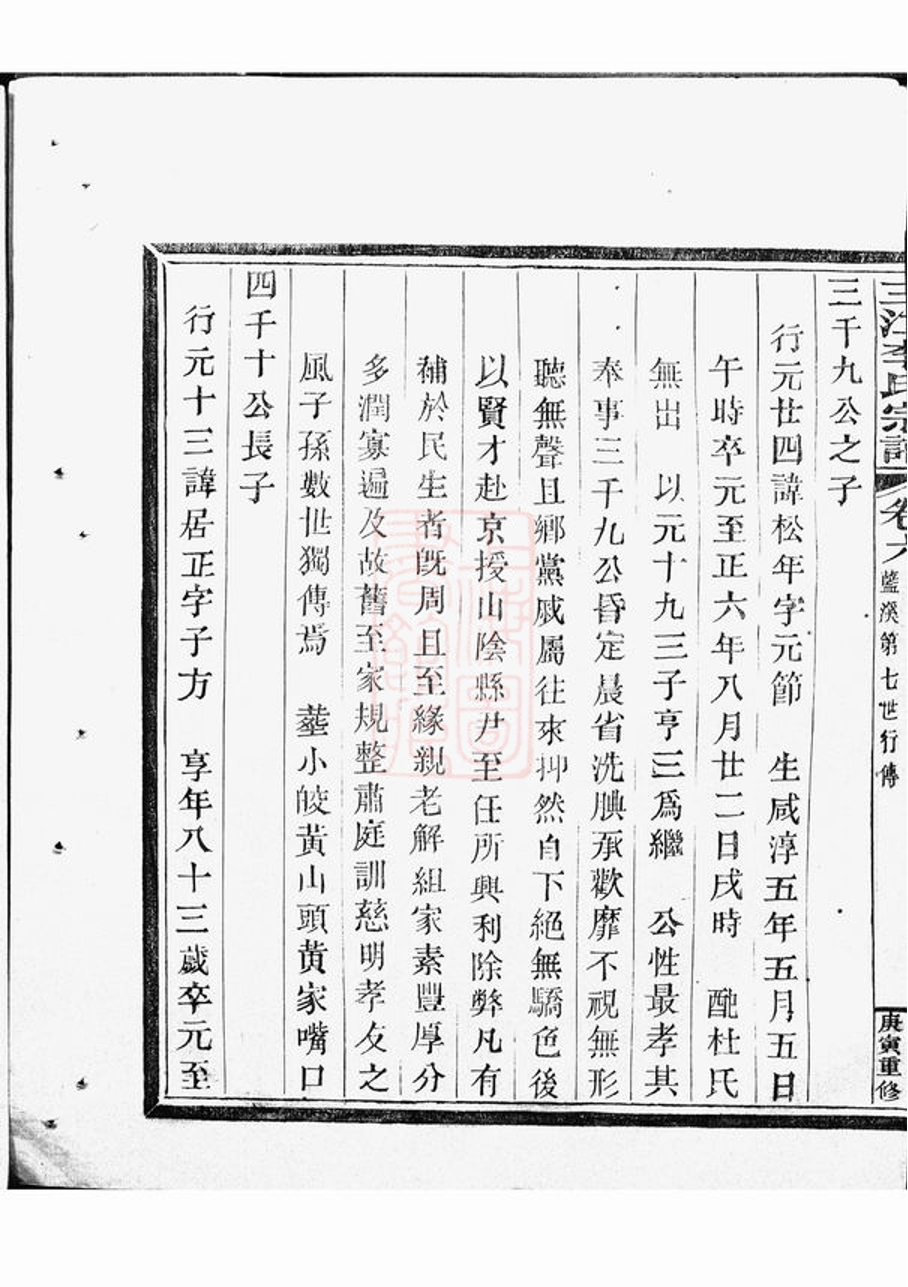 三江李氏宗譜 卷六 藍溪第七世行傳 庚寅重修
三千九公之子
行元廿四諱松年字元節 生咸淳五年五月五日
午時卒元至正六年八月廿二日戌時 配杜氏
無出 以元十九三子亨三為繼 公性最孝其
奉事三千九公昏定晨省洗腆承歡靡不視無形
聽無聲且鄉黨戚屬往來抑然自下絕無驕色後
以賢才赴京授山陰縣尹至任所興利除弊凡有
補於民生者旣周且至緣親老解組家素豐厚分
多潤寡遍及故舊至家規整肅庭訓慈明孝友之
風子孫數世獨傳焉 塟小皎黃山頭黄家嘴口
四千十公長子
行元十三諱居正字子方 享年八十三歲卒元至